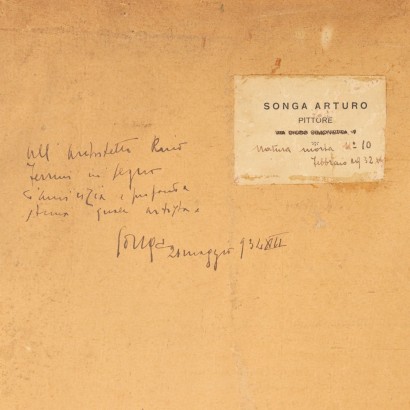 SONGA ARTURO
PITTURE
natura morta Nº 10
Febbraio
All' Architetto
in segno
d'amicizia e profonda
stima quale artista
Songa
20 maggio 934 XII